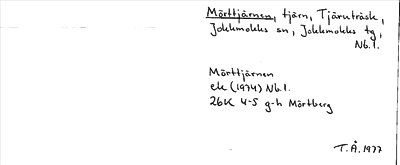 Mörttjärnen, tjärn, Tjäruträsk,
Jokkmokks sn, Jokkmokks tg,
Nb.l.
Mörttjärnen
ek (1974) Nb.l.
26K 4-5 g-h Mörtberg
T.Å. 1977